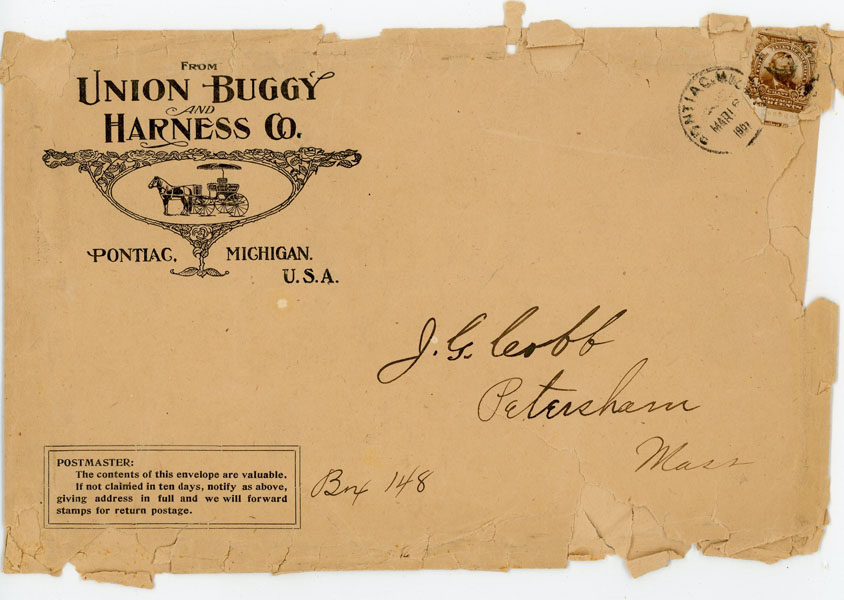 FROM
UNION BUGGY
AND
HARNESS CO.
PONTIAC, MICHIGAN.
U.S.A.
PONTIAC, MICH.
MAR 1
1901
J. G. Cobb
Petersham
Mass
Box 148
POSTMASTER:
The contents of this envelope are valuable.
If not claimed in ten days, notify as above,
giving address in full and we will forward
stamps for return postage.